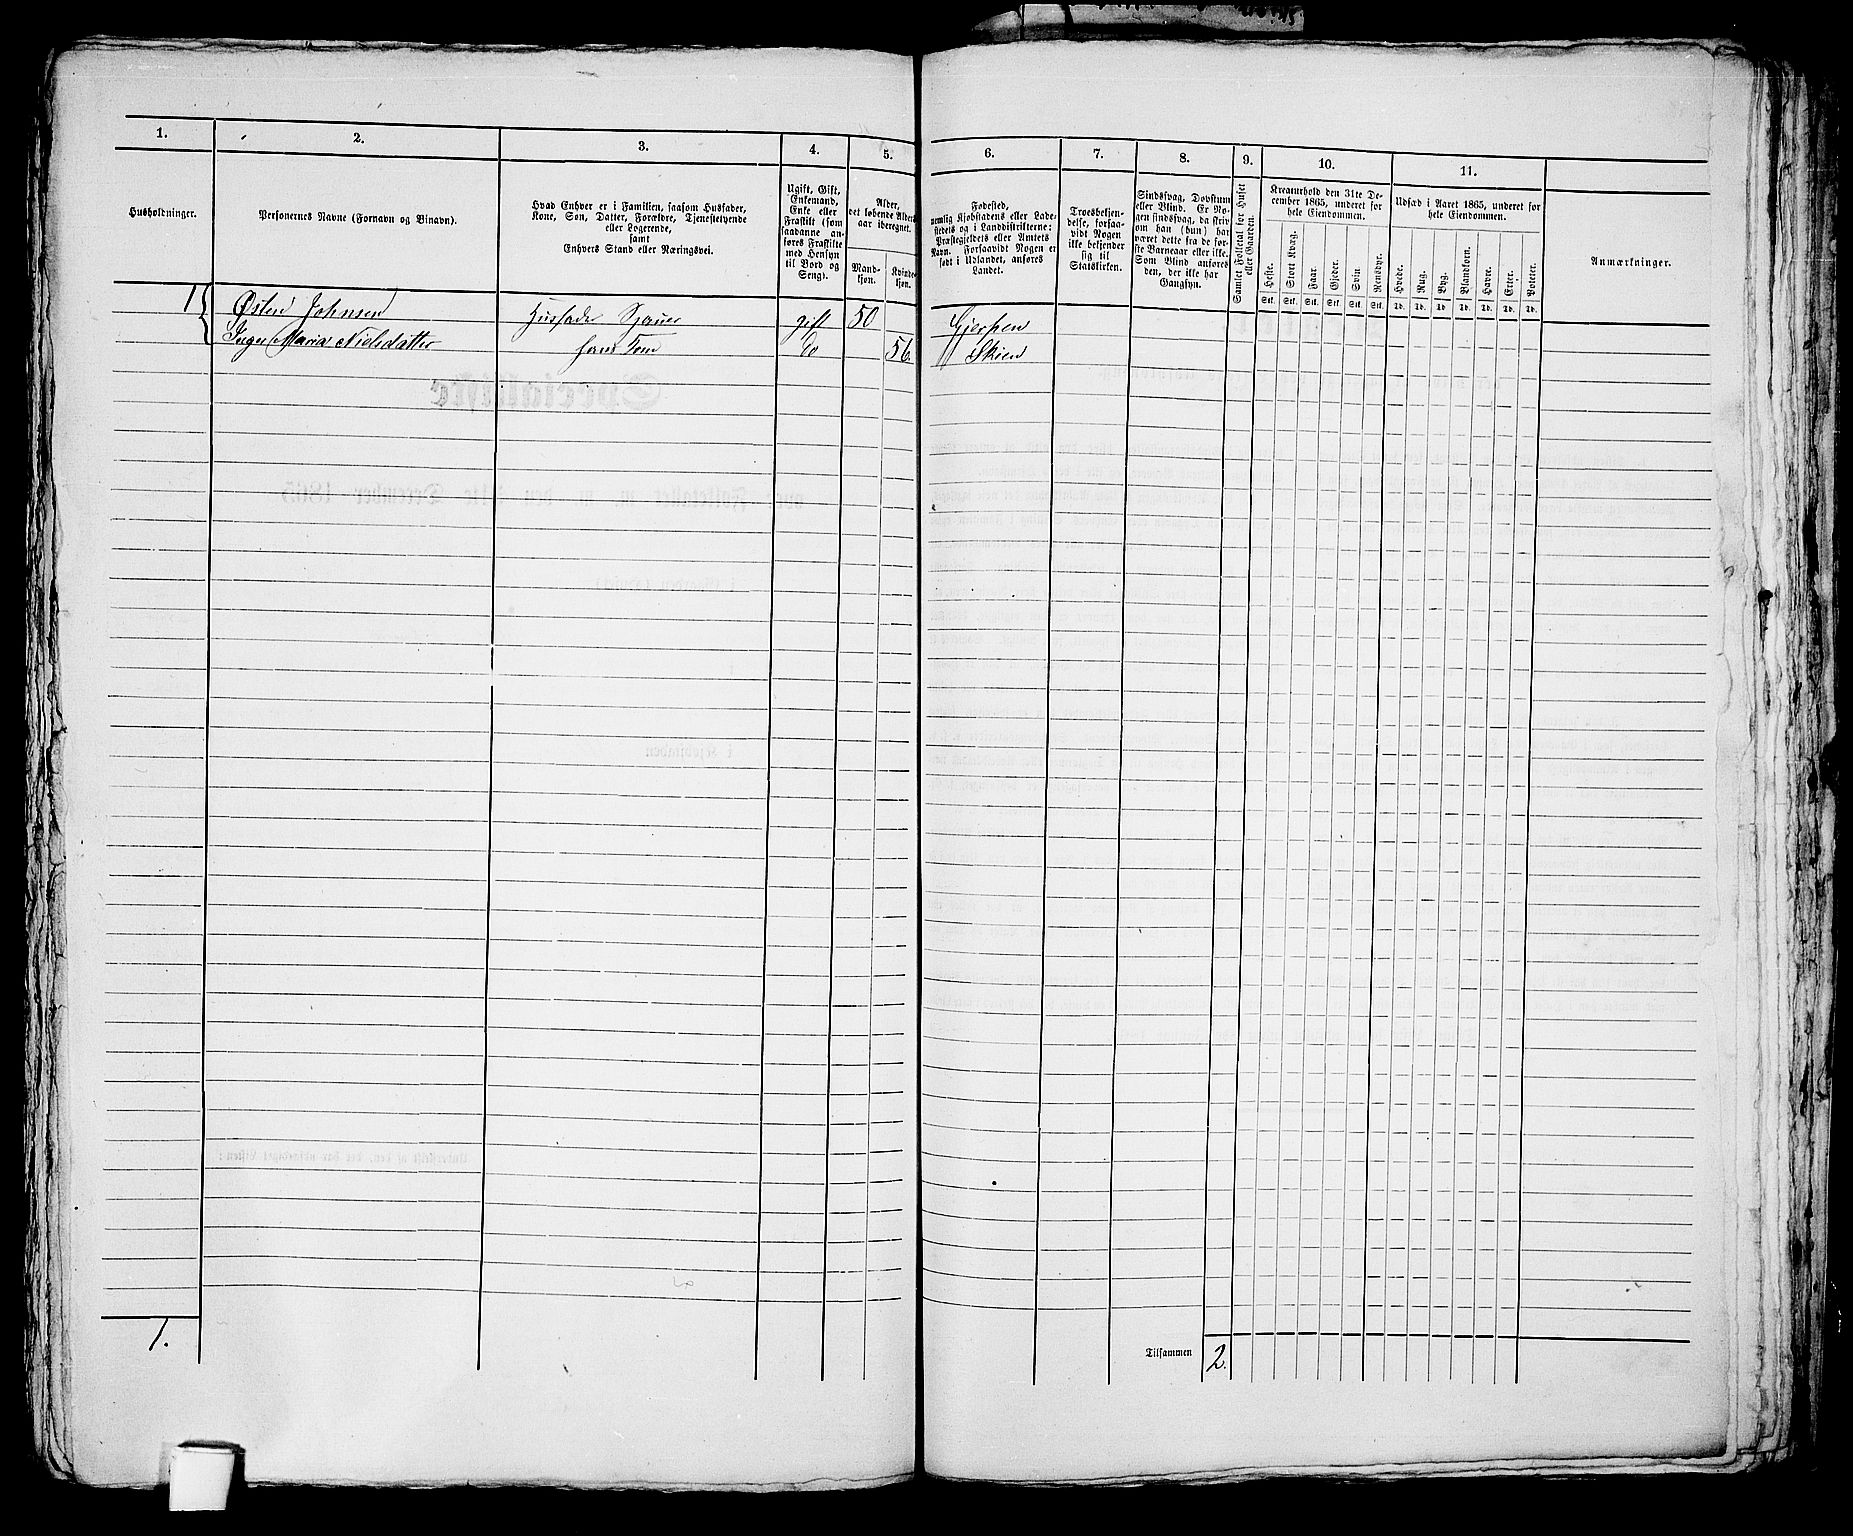 1.
2.
3.
4.
5.
6.
7.
8.
9.
10.
11.
Husholdninger.
Personernes Navne (Fornavn og Binavn).
Hvad Enhver er i Familien, saasom Husfader,
Kone, Søn, Datter, Forældre, Tjenestetyende
eller Logerende,
samt
Enhvers Stand eller Næringsvei.
Ugift, Gift,
Enkemand,
Enke eller
Fraskilt (som
saadanne an-
føres Fraskilte
med Hensyn
til Bord og
Seng).
Alder,
det løbende Alders-
aar iberegnet.
Mand-
kjøn.
Kvinde-
kjøn.
Fødested,
nemlig Kjøbstadens eller Lade-
stedets og i Landdistrikterne:
Præstegjeldets eller Amtets
Navn. Forsaavidt Nogen er
født i Udlandet, anføres
Landet.
Troesbekjen-
delse, forsaa-
vidt Nogen
ikke bekjender
sig til
Statskirken.
Sindssvag, Døvstum
eller Blind. Er No-
gen sindssvag, da skriv
om han (hun) har
været dette fra de før-
ste Barneaar eller ikke.
Som Blind anføres
den, der ikke har
Gangsyn.
Samlet Folketal for Huset
eller Gaarden.
Kreaturhold den 31te De-
cember 1865, underet for
hele Eiendommen.
Heste.
Stort Kvæg.
Faar.
Gjeder.
Sviin.
Rensdyr.
Stk. Stk. Stk. Stk. Stk. Stk.
Udsæd i Aaret 1865, underet for
hele Eiendommen.
Hvede.
Rug.
Byg.
Blandkorn.
Havre.
Erter.
Poteter.
Td. Td. Td. Td. Td. Td. Td.
Anmærkninger.
1 Østen Johnsen Husfader gift 50 Gjerpen
Inger Maria Nielsdatter hans Kone do 56. Skien
1.
Tilsammen 2.